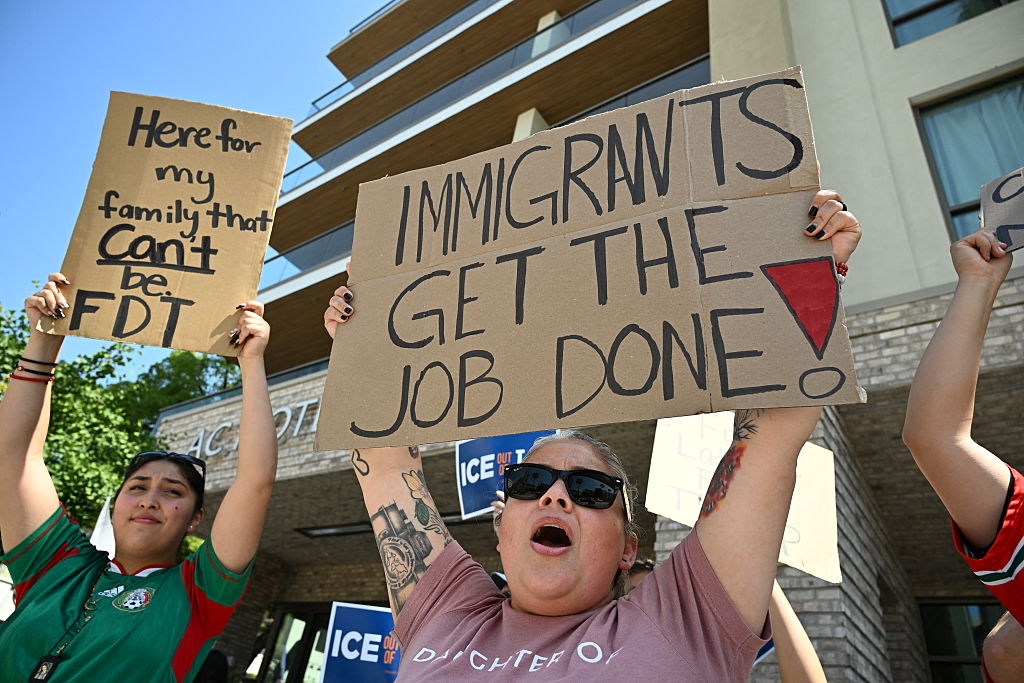 Here for
my
family that
Can't
be
FDT
IMMIGRANTS
GET THE
JOB DONE!
AC HOTEL
ICE OUT
OF
ICE OUT
OF
DAUGHTER OF